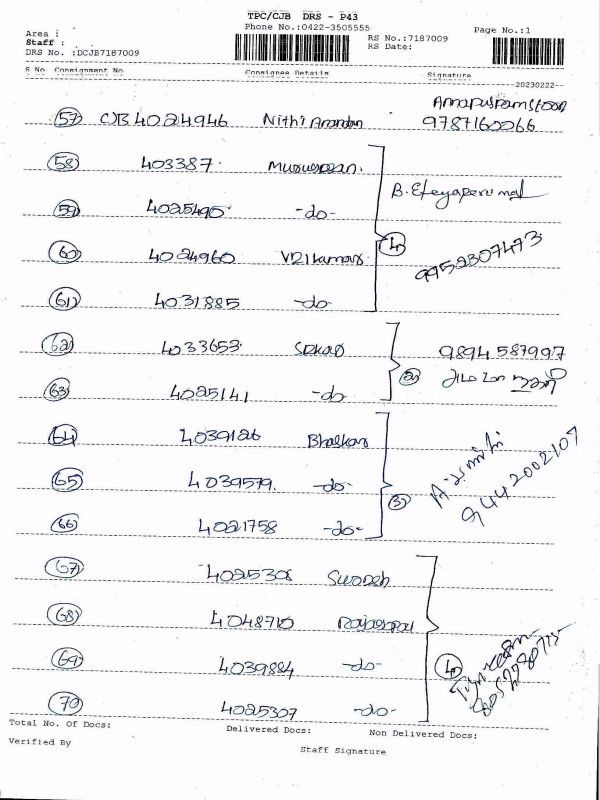 TPC/CJB DRS - P43
Phone No.:0422-3505555
Area :
Staff :
DRS No. :DCJB7187009
RS No.:7187009
RS Date:
Page No.:1
S No. Consignment No.
Consignee Details
Signature
20230222--
57 CJB 4024946 Nithi Anandan 9787160066
58 403387
B. Eleyaperumal
59 4025490 -do-
60 4024960 4
9952307473
61 4031885 -do-
62 4033653 Sekar 2 9894587997
63 4025141 -do-
64 4039126 Bhaskar
65 4039579 -do-
9442002107
66 4021758 -do- 3
67 4025308
68 4048710 Rajagopal
69 4039884 -do- 4
70 4025307 -do-
Total No. Of Docs:
Delivered Docs:
Non Delivered Docs:
Verified By
Staff Signature